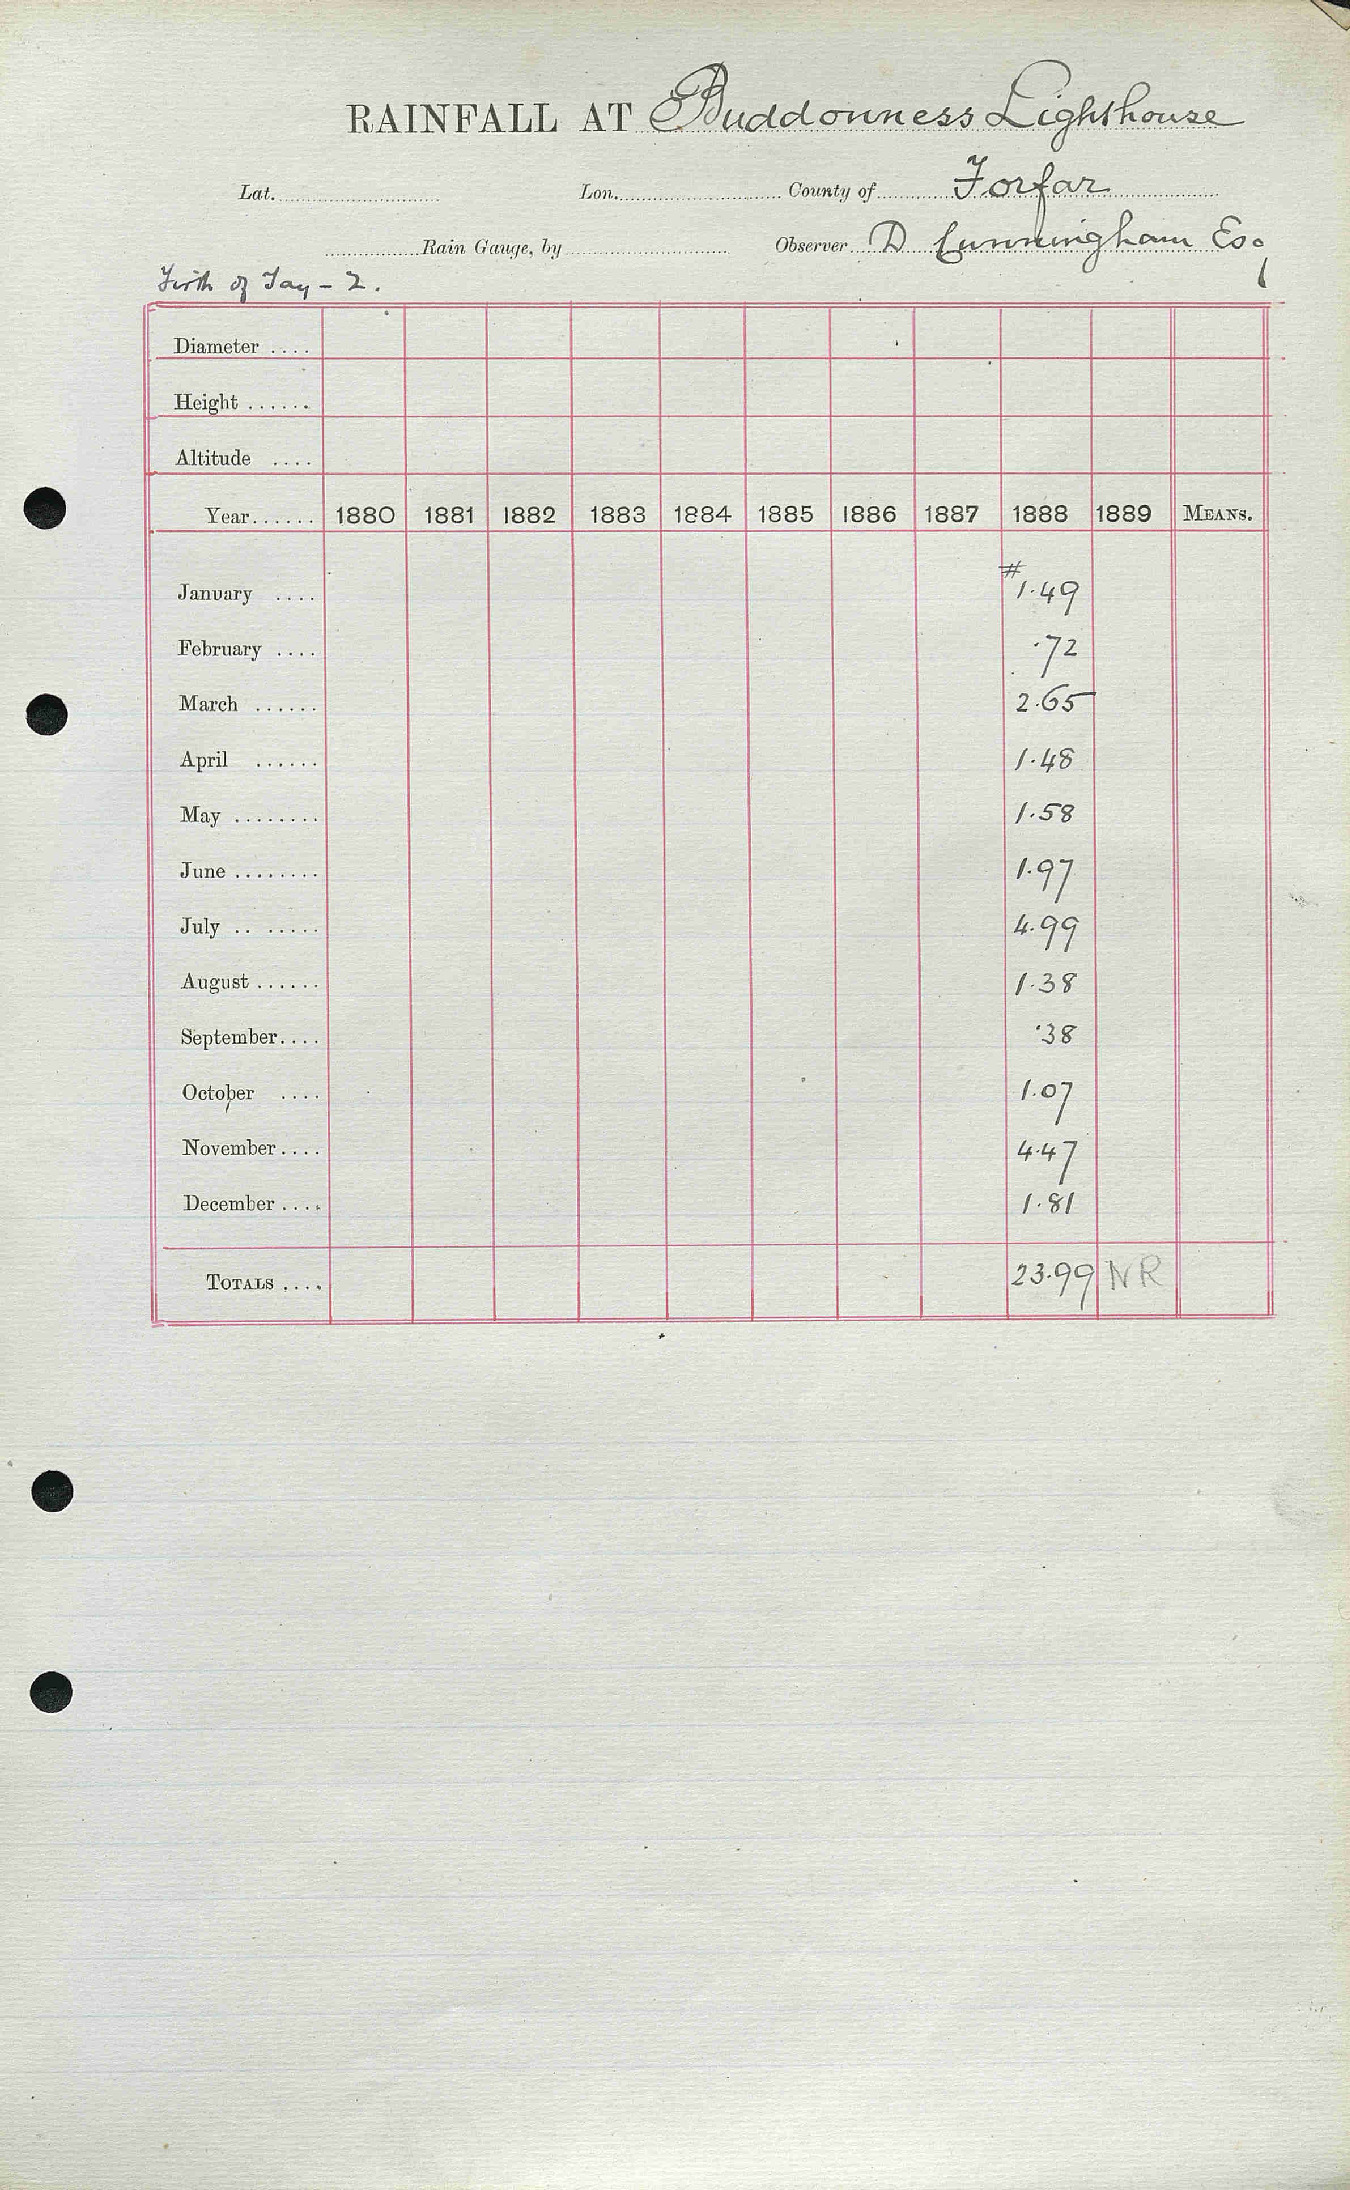 RAINFALL AT Buddonness Lighthouse
Lat. Lon. County of Forfar
Rain Gauge, by Observer D Cunningham Esq
Firth of Tay - 2.
Diameter ....
Height ......
Altitude ....
Year...... 1880 1881 1882 1883 1884 1885 1886 1887 1888 1889 MEANS.
January .... # 1.49
February .... .72
March ...... 2.65
April ...... 1.48
May ........ 1.58
June ........ 1.97
July .. ..... 4.99
August ...... 1.38
September.... .38
October .... 1.07
November.... 4.47
December .... 1.81
TOTALS .... 23.99 NR